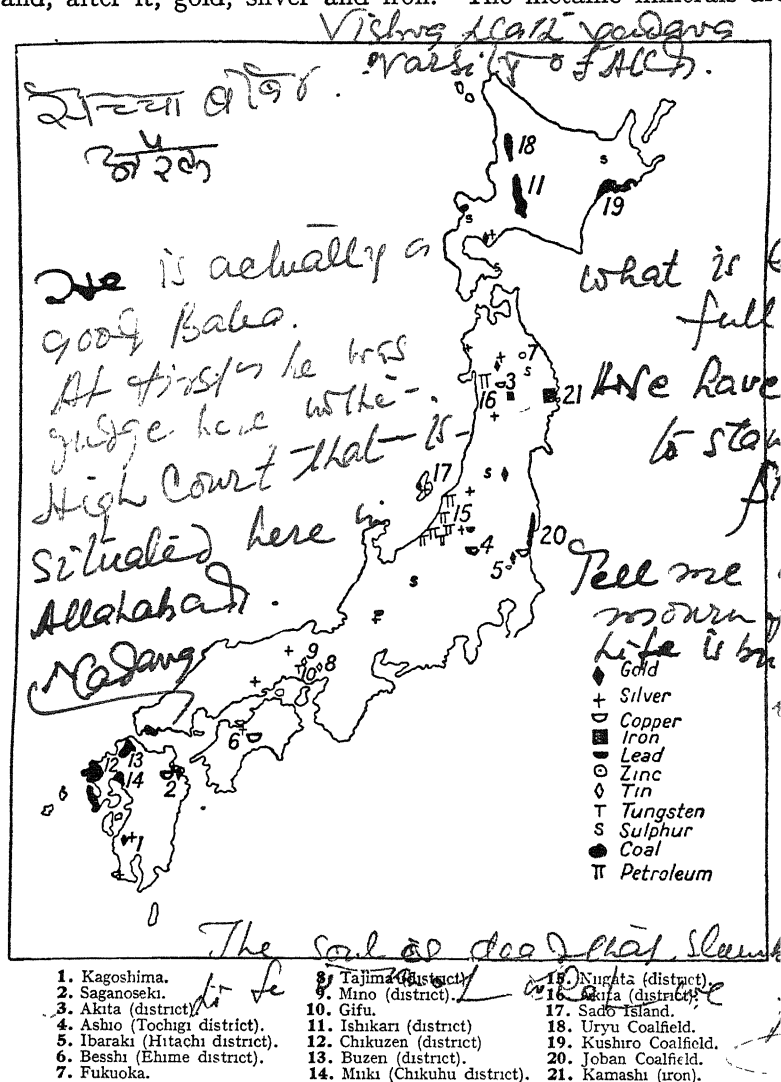 and, after it, gold, silver and iron. The metallic minerals are
Vishwa
Varsity of Alld.
सच्चा
is actually a
good Baba.
At first he was
judge here in the
High Court that is
situated here in
Allahabad.
what is
full
We have
to stay
Tell me
mourn
Life is bu
18
S
11
19
S
S
7
S
3
16
21
17
S
15
20
4
5
S
9
10
8
6
12
13
14
2
1
Gold
Silver
Copper
Iron
Lead
Zinc
Tin
T Tungsten
S Sulphur
Coal
Petroleum
The soul is dead that slumb
Life
1. Kagoshima.
2. Saganoseki.
3. Akita (district)
4. Ashio (Tochigi district).
5. Ibaraki (Hitachi district).
6. Besshi (Ehime district).
7. Fukuoka.
8. Tajima (district)
9. Mino (district).
10. Gifu.
11. Ishikari (district)
12. Chikuzen (district)
13. Buzen (district).
14. Miiki (Chikuhu district).
15. Niigata (district).
16. Akita (district).
17. Sado Island.
18. Uryu Coalfield.
19. Kushiro Coalfield.
20. Joban Coalfield.
21. Kamashi (iron).